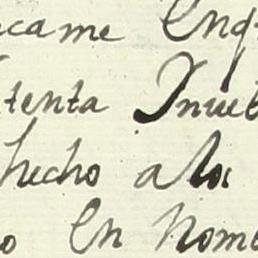 came Enq
tenta Jniu
hecho a los
o En nom